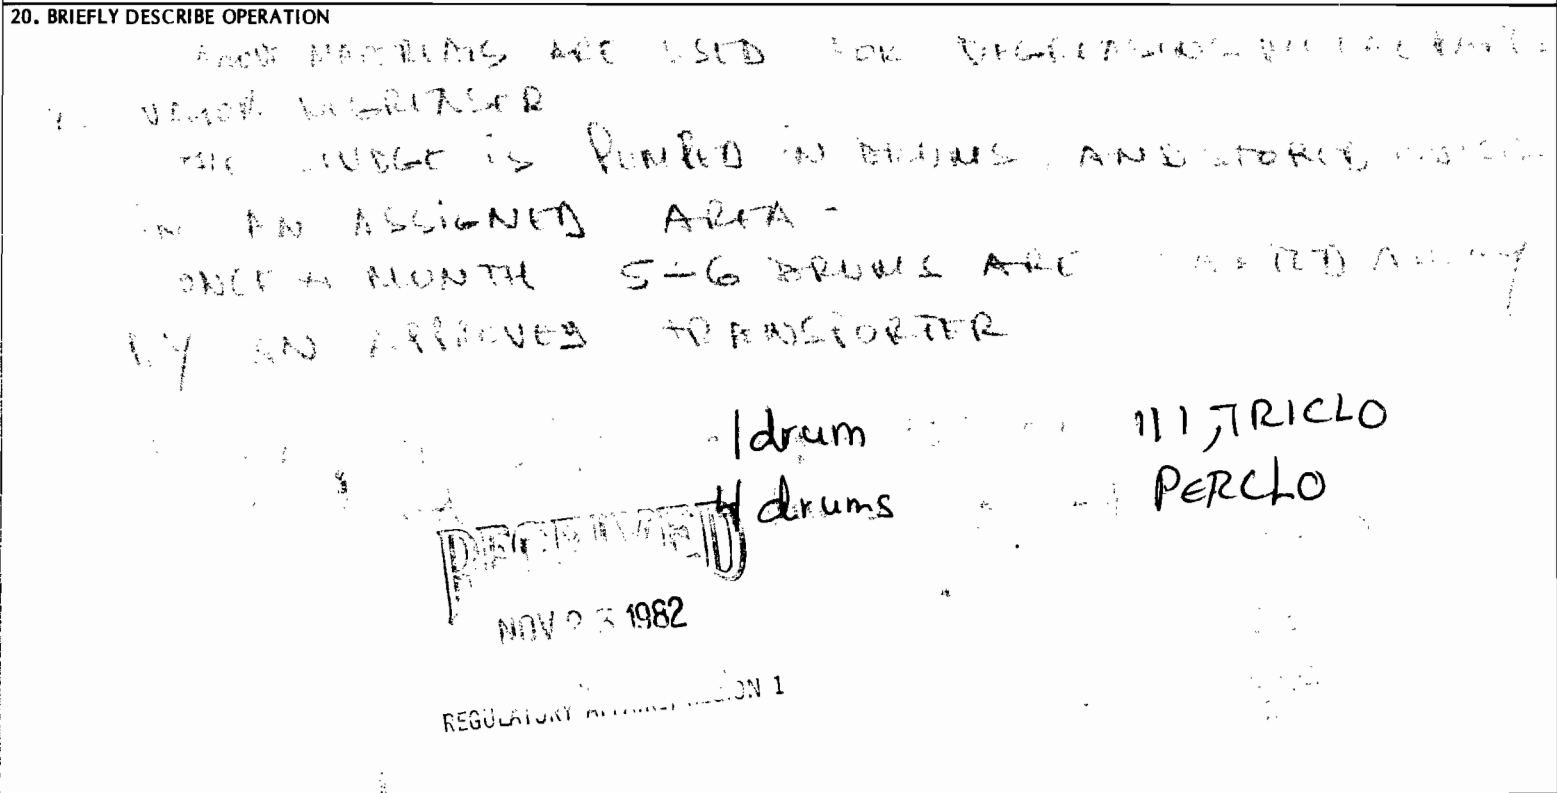 20. BRIEFLY DESCRIBE OPERATION
ARE USED FOR DEGREASING
VAPOR DEGREASER
IS PUMPED IN DRUMS AND STORED
IN AN ASSIGNED AREA -
ONCE A MONTH 5-6 DRUMS ARE
BY AN APPROVED TRANSPORTER
1 drum 111,TRICLO
4 drums PERCLO
RECEIVED
NOV 1982
REGULATORY 1